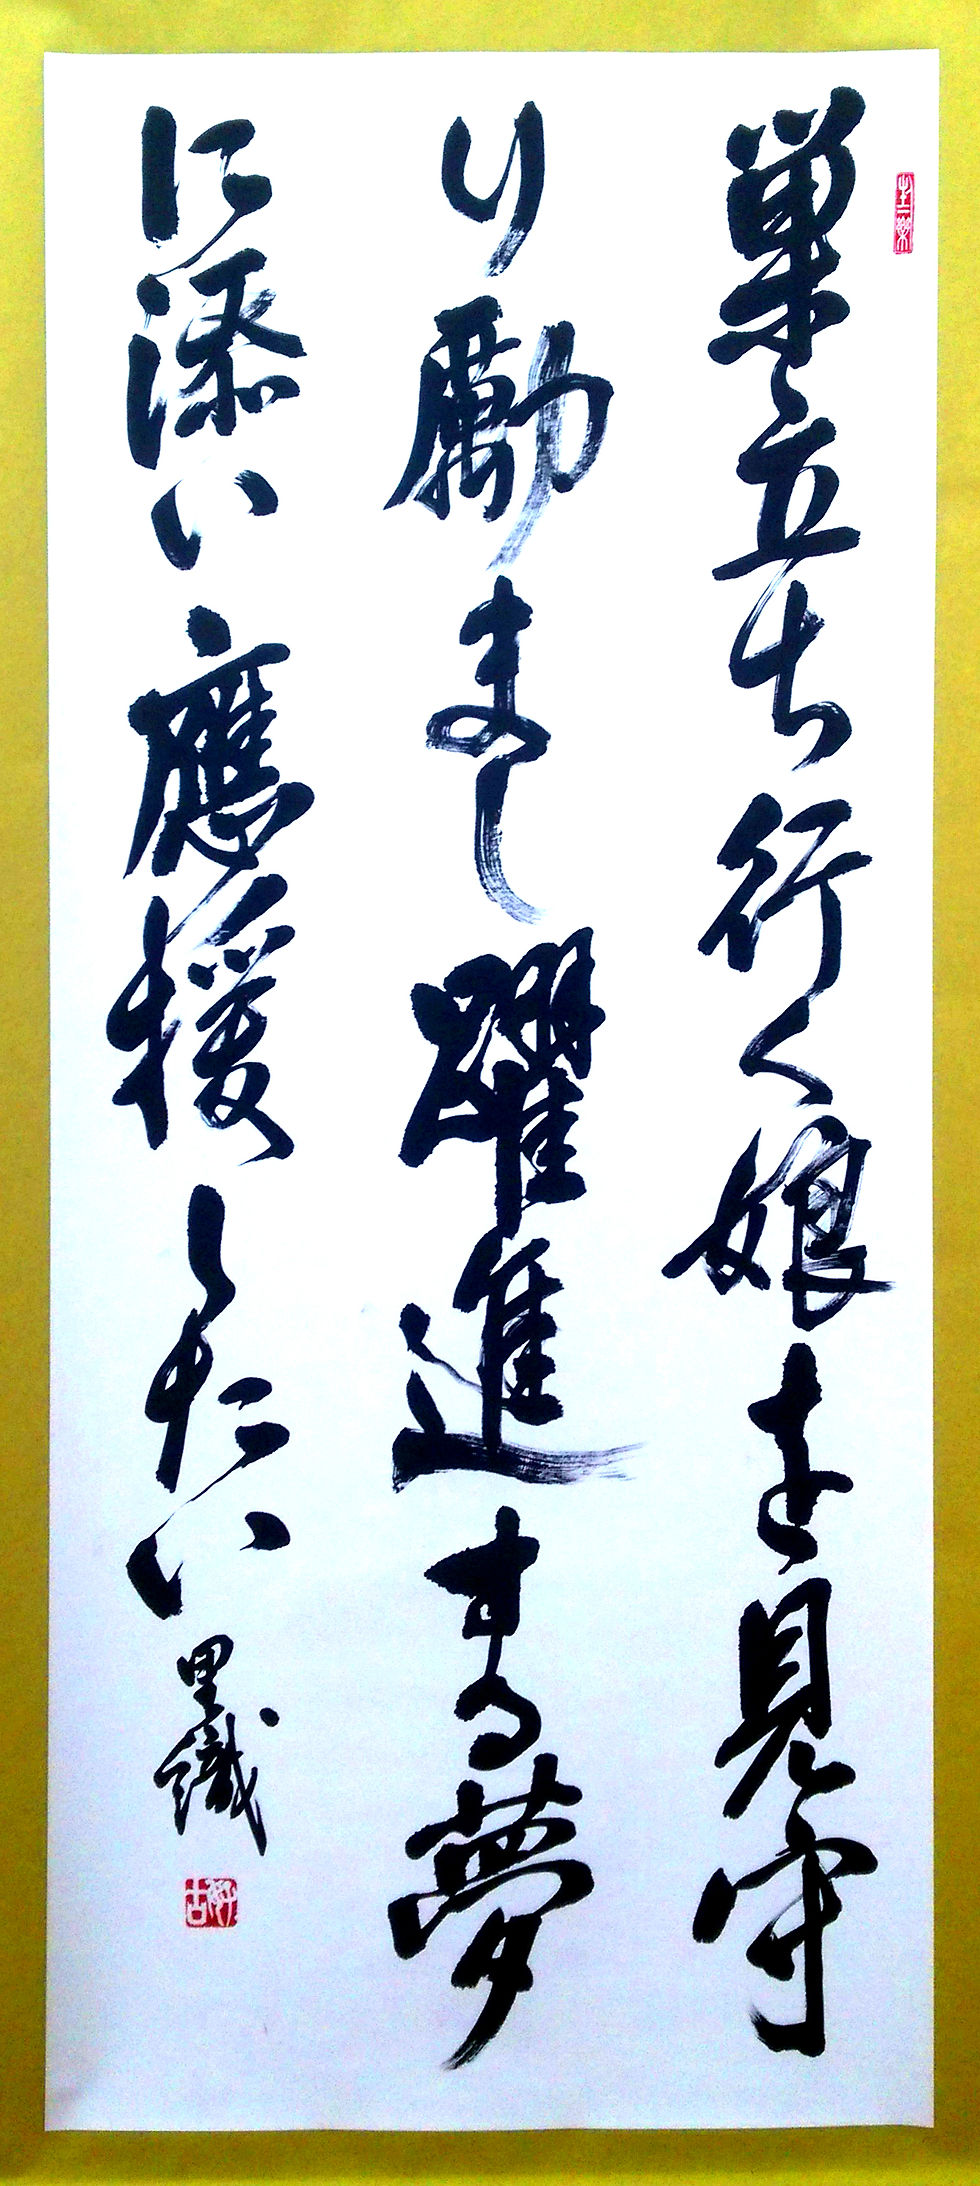 巣立ち行く娘を見守
り勵まし躍進する夢
に添い應援したい
里織